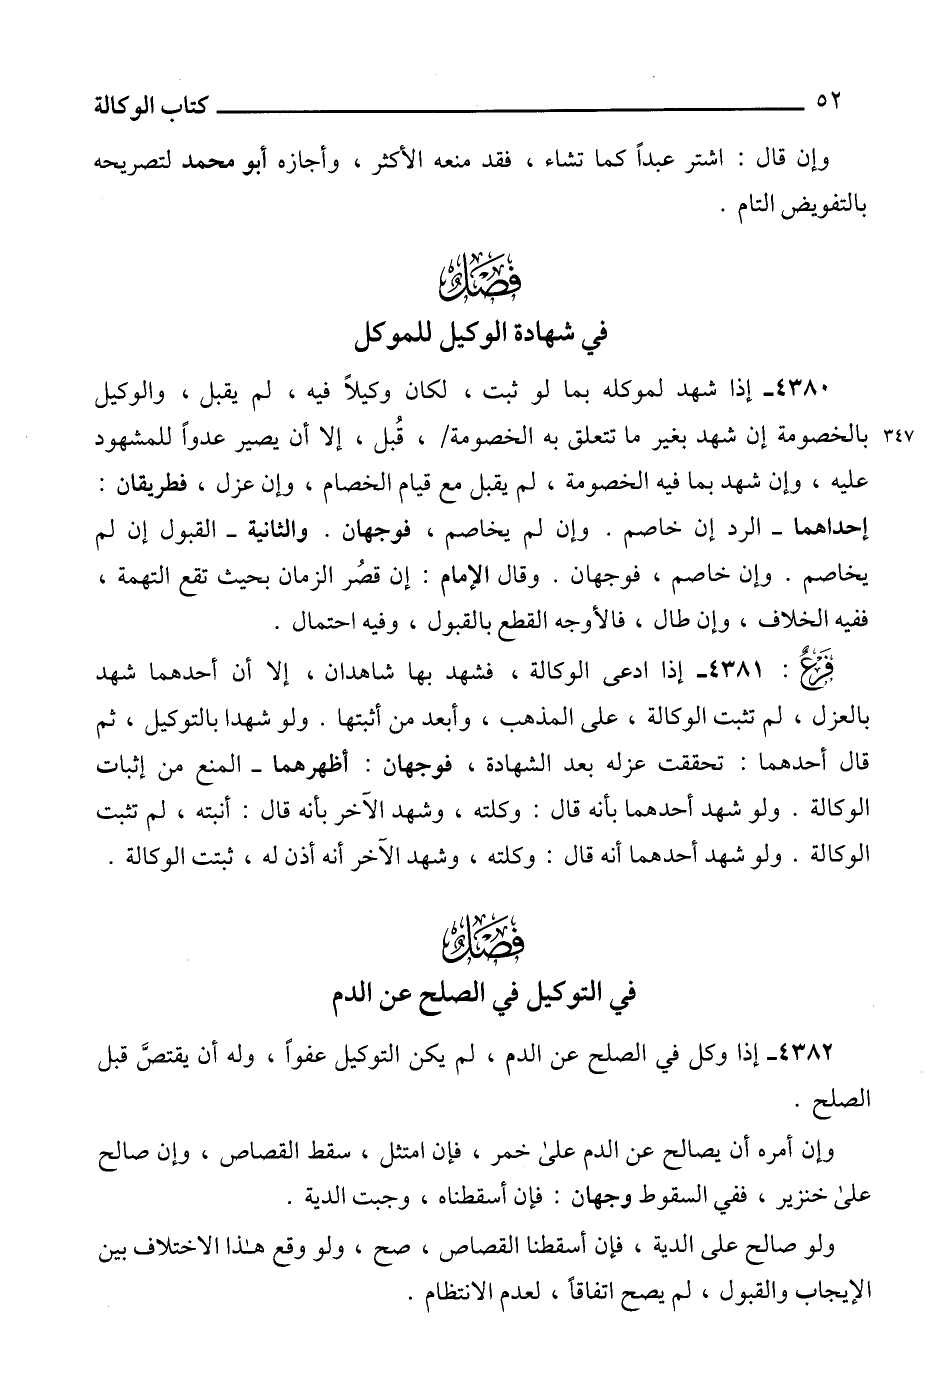 ٥٢ ــــــ كتاب الوكالة
وإن قال : اشتر عبداً كما تشاء ، فقد منعه الأكثر ، وأجازه أبو محمد لتصريحه
بالتفويض التام .
فَصْلٌ
في شهادة الوكيل للموكل
٤٣٨٠ـ إذا شهد لموكله بما لو ثبت ، لكان وكيلاً فيه ، لم يقبل ، والوكيل
بالخصومة إن شهد بغير ما تتعلق به الخصومة/ ، قُبل ، إلا أن يصير عدواً للمشهود ٣٤٧
عليه ، وإن شهد بما فيه الخصومة ، لم يقبل مع قيام الخصام ، وإن عزل ، فطريقان :
إحداهما ـ الرد إن خاصم . وإن لم يخاصم ، فوجهان . والثانية ـ القبول إن لم
يخاصم . وإن خاصم ، فوجهان . وقال الإمام : إن قصُر الزمان بحيث تقع التهمة ،
ففيه الخلاف ، وإن طال ، فالأوجه القطع بالقبول ، وفيه احتمال .
فَرْعٌ : ٤٣٨١ـ إذا ادعى الوكالة ، فشهد بها شاهدان ، إلا أن أحدهما شهد
بالعزل ، لم تثبت الوكالة ، على المذهب ، وأبعد من أثبتها . ولو شهدا بالتوكيل ، ثم
قال أحدهما : تحققت عزله بعد الشهادة ، فوجهان : أظهرهما ـ المنع من إثبات
الوكالة . ولو شهد أحدهما بأنه قال : وكلته ، وشهد الآخر بأنه قال : أنبته ، لم تثبت
الوكالة . ولو شهد أحدهما أنه قال : وكلته ، وشهد الآخر أنه أذن له ، ثبتت الوكالة .
فَصْلٌ
في التوكيل في الصلح عن الدم
٤٣٨٢ـ إذا وكل في الصلح عن الدم ، لم يكن التوكيل عفواً ، وله أن يقتصَّ قبل
الصلح .
وإن أمره أن يصالح عن الدم علىٰ خمر ، فإن امتثل ، سقط القصاص ، وإن صالح
علىٰ خنزير ، ففي السقوط وجهان : فإن أسقطناه ، وجبت الدية .
ولو صالح على الدية ، فإن أسقطنا القصاص ، صح ، ولو وقع هـٰذا الاختلاف بين
الإيجاب والقبول ، لم يصح اتفاقاً ، لعدم الانتظام .